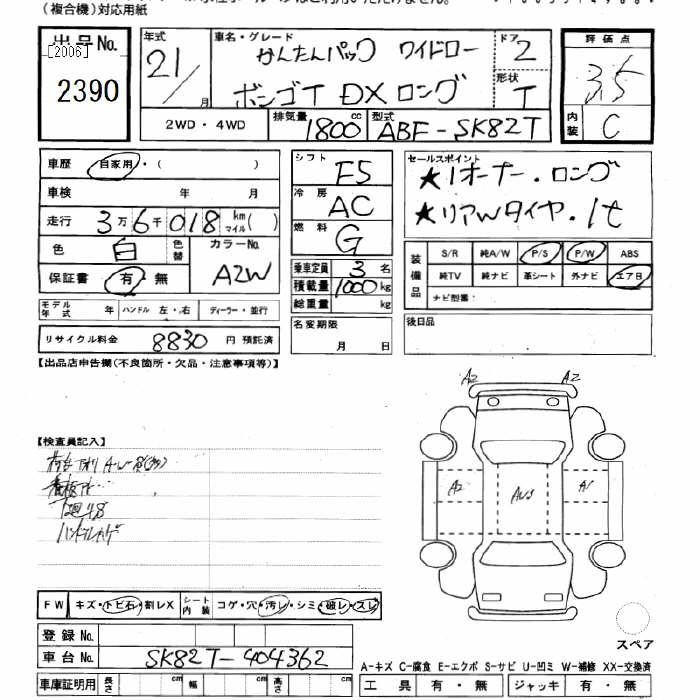 (複合機)対応用紙
出品No.
[2006]
2390
年式
21/月
車名・グレード
かんたんパック ワイドロー
ボンゴT DX ロング
ドア
2
形状
T
評価点
3.5
内装
C
2WD・4WD
排気量 1800 cc
型式 ABF-SK82T
車歴 自家用・( )
車検 年 月
走行 3万6千018 km マイル( )
色 白 色替
カラーNo. A2W
保証書 有・無
モデル年式 年 ハンドル 左・右 ディーラー・並行
リサイクル料金 8830 円 預託済
シフト F5
冷房 AC
燃料 G
乗車定員 3 名
積載量 1000 kg
総重量 kg
名変期限
月 日
セールスポイント
★1オーナー.ロング
★リアWタイヤ.1t
装備品
S/R 純A/W P/S P/W ABS
純TV 純ナビ 革シート 外ナビ エアB
ナビ型番:
後日品
【出品店申告欄(不良箇所・欠品・注意事項等)】
【検査員記入】
A2 A2
A2 A1
FW キズ・トビ石・割レX
シート内装 コゲ・穴・汚レ・シミ・破レ・スレ
登録No.
車台No. SK82T-404362
車庫証明用 長さ cm 幅 cm 高さ cm
スペア
A-キズ C-腐食 E-エクボ S-サビ U-凹ミ W-補修 XX-交換済
工具 有・無 ジャッキ 有・無